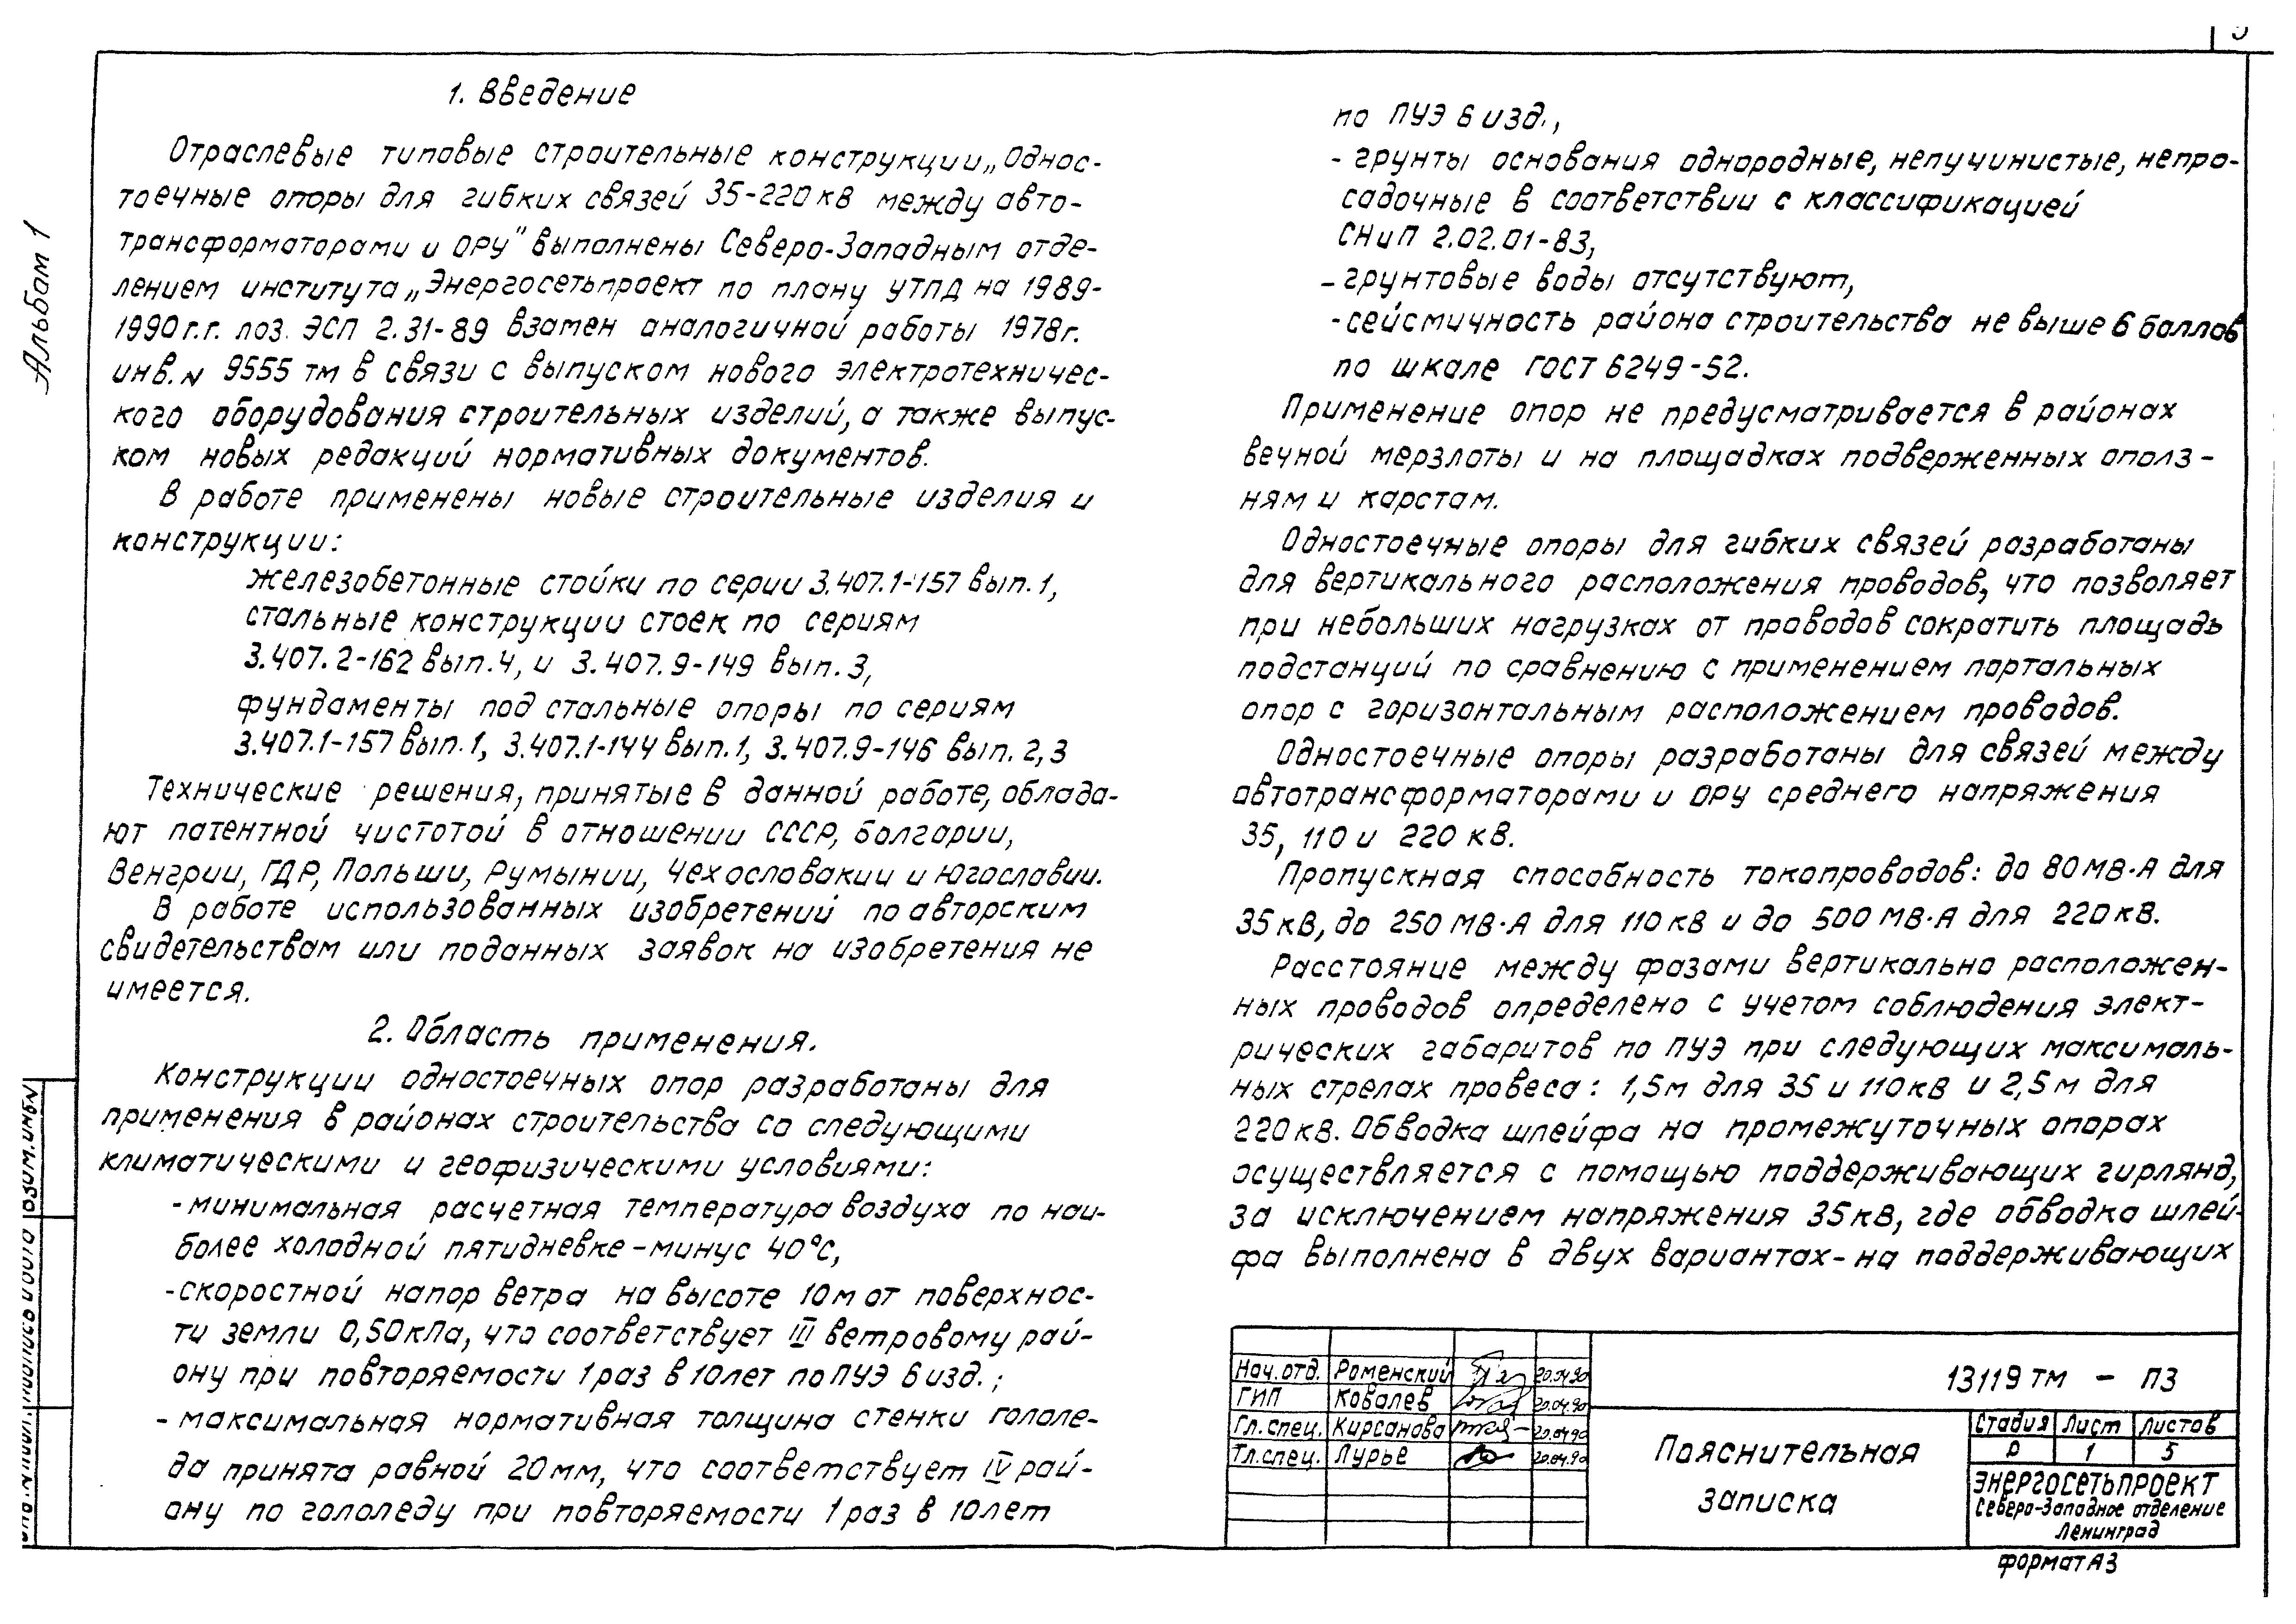 Альбом 1
1. Введение
Отраслевые типовые строительные конструкции „Однос-
тоечные опоры для гибких связей 35-220кВ между авто-
трансформаторами и ОРУ" выполнены Северо-Западным отде-
лением института „Энергосетьпроект по плану УТПД на 1989-
1990г.г. поз. ЭСП 2.31-89 взамен аналогичной работы 1978г.
инв. N 9555 тм в связи с выпуском нового электротехничес-
кого оборудования строительных изделий, а также выпус-
ком новых редакций нормативных документов.
В работе применены новые строительные изделия и
конструкции:
железобетонные стойки по серии 3.407.1-157 вып.1,
стальные конструкции стоек по сериям
3.407.2-162 вып.4, и 3.407.9-149 вып.3,
фундаменты под стальные опоры по сериям
3.407.1-157 вып.1, 3.407.1-144 вып.1, 3.407.9-146 вып.2,3
Технические решения, принятые в данной работе, облада-
ют патентной чистотой в отношении СССР, Болгарии,
Венгрии, ГДР, Польши, Румынии, Чехословакии и Югославии.
В работе использованных изобретений по авторским
свидетельствам или поданных заявок на изобретения не
имеется.
2. Область применения.
Конструкции одностоечных опор разработаны для
применения в районах строительства со следующими
климатическими и геофизическими условиями:
- минимальная расчетная температура воздуха по наи-
более холодной пятидневке - минус 40°С,
- скоростной напор ветра на высоте 10м от поверхнос-
ти земли 0,50кПа, что соответствует III ветровому рай-
ону при повторяемости 1 раз в 10лет по ПУЭ 6 изд.;
- максимальная нормативная толщина стенки гололе-
да принята равной 20мм, что соответствует IV рай-
ону по гололеду при повторяемости 1 раз в 10лет
по ПУЭ 6 изд.,
- грунты основания однородные, непучинистые, непро-
садочные в соответствии с классификацией
СНиП 2.02.01-83,
- грунтовые воды отсутствуют,
- сейсмичность района строительства не выше 6 баллов
по шкале ГОСТ 6249-52.
Применение опор не предусматривается в районах
вечной мерзлоты и на площадках подверженных ополз-
ням и карстам.
Одностоечные опоры для гибких связей разработаны
для вертикального расположения проводов, что позволяет
при небольших нагрузках от проводов сократить площадь
подстанций по сравнению с применением портальных
опор с горизонтальным расположением проводов.
Одностоечные опоры разработаны для связей между
автотрансформаторами и ОРУ среднего напряжения
35, 110 и 220 кВ.
Пропускная способность токопроводов: до 80МВ·А для
35кВ, до 250 МВ·А для 110кВ и до 500 МВ·А для 220кВ.
Расстояние между фазами вертикально расположен-
ных проводов определено с учетом соблюдения элект-
рических габаритов по ПУЭ при следующих максималь-
ных стрелах провеса: 1,5м для 35 и 110кВ и 2,5м для
220кВ. Обводка шлейфа на промежуточных опорах
осуществляется с помощью поддерживающих гирлянд,
за исключением напряжения 35кВ, где обводка шлей-
фа выполнена в двух вариантах - на поддерживающих
Нач. отд. Роменский 20.04.90
ГИП Ковалев 20.04.90
Гл. спец. Кирсанова 20.04.90
Гл. спец. Лурье 20.04.90
13119 тм - ПЗ
Пояснительная
записка
Стадия Лист Листов
Р 1 5
ЭНЕРГОСЕТЬПРОЕКТ
Северо-Западное отделение
Ленинград
формат А3
Взам. инв. N